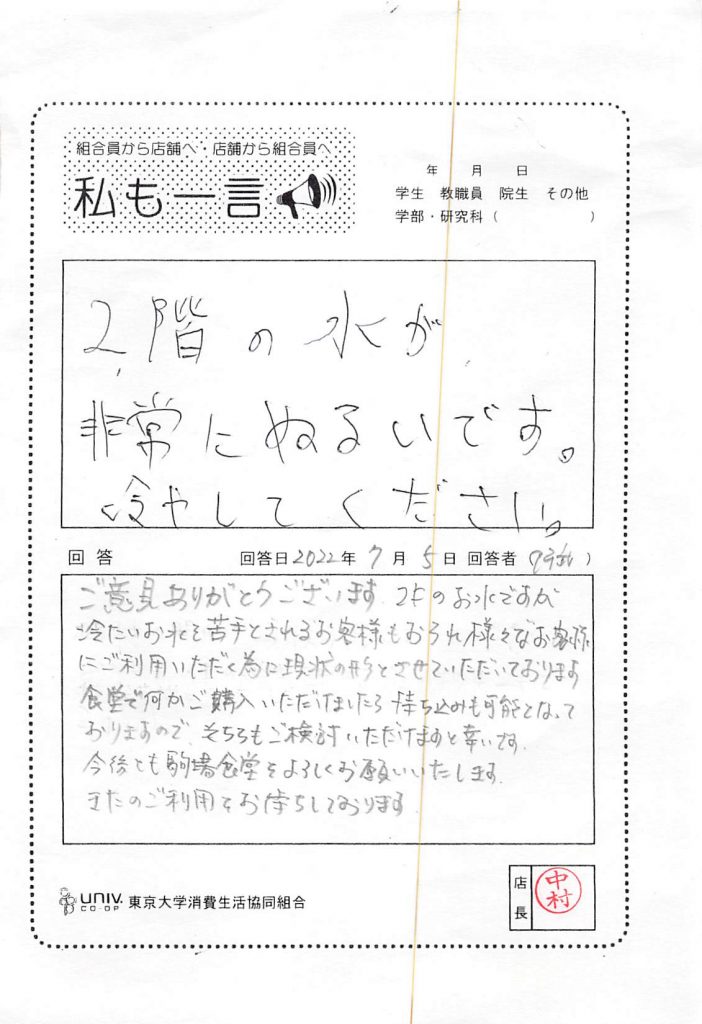 組合員から店舗へ・店舗から組合員へ
私も一言
年 月 日
学生 教職員 院生 その他
学部・研究科( )
2階の水が
非常にぬるいです。
冷やしてください。
回答 回答日2022年 7月 5日 回答者( )
ご意見ありがとうございます。2Fのお水ですが
冷たいお水を苦手とされるお客様もおられ様々なお客様
にご利用いただく為に現状の形とさせていただいております
食堂で何かご購入いただけましたら持ち込みも可能となって
おりますので、そちらもご検討いただけますと幸いです。
今後とも駒場食堂をよろしくお願いいたします。
またのご利用をお待ちしております
UNIV. CO-OP 東京大学消費生活協同組合
店長
中村